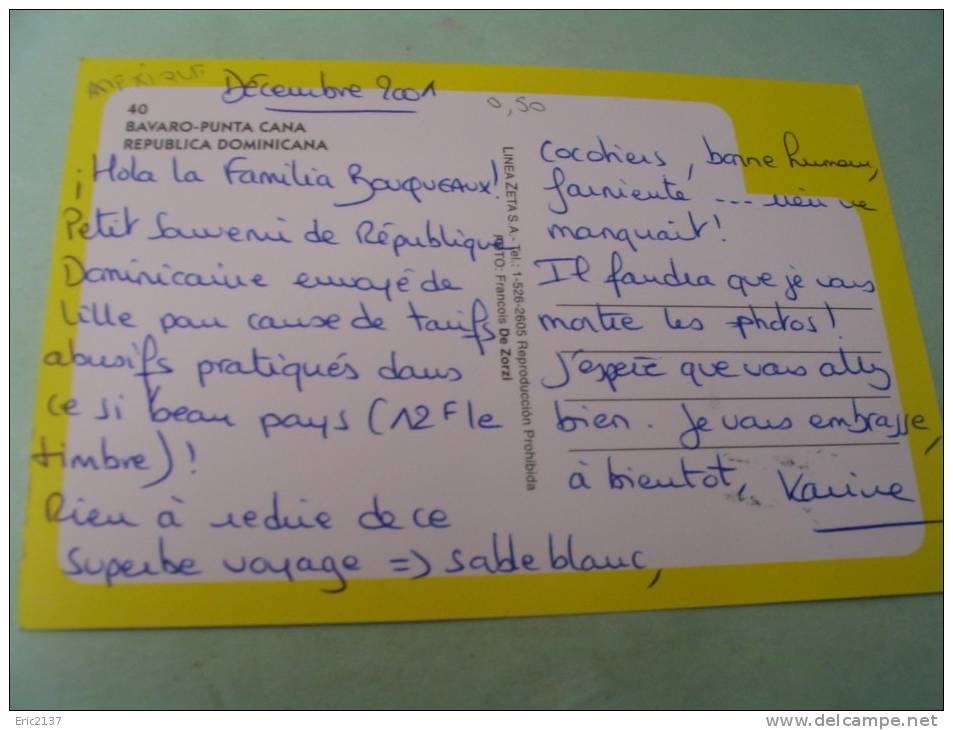 MEXIQUE
Décembre 2001
0,50
40
BAVARO-PUNTA CANA
REPUBLICA DOMINICANA
¡Hola la Familia Bouqueaux!
Petit Souvenir de République
Dominicaine envoyé de
Lille pour cause de tarifs
abusifs pratiqués dans
ce si beau pays (12F le
timbre)!
Rien à redire de ce
superbe voyage => sable blanc,
LINEA ZETA S.A.- Tel.: 1-526-2605 Reproducción Prohibida
FOTO: Francois De Zorzi
cocotiers, bonne humeur,
farniente ... rien ne
manquait!
Il faudra que je vous
montre les photos!
J'espère que vous allez
bien. Je vous embrasse,
à bientot, Karine
Eric2137
www.delcampe.net